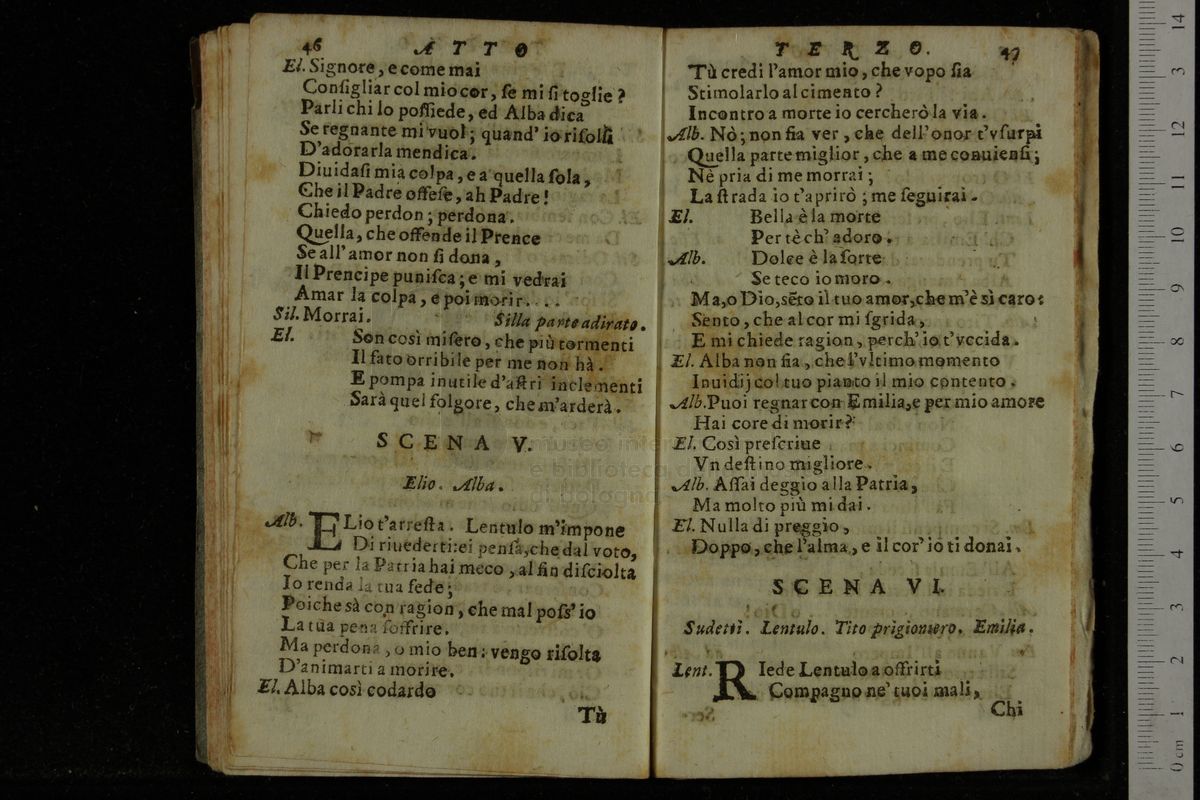 46 ATTO
El. Signore, e come mai
Conſigliar col mio cor, ſe mi ſi toglie?
Parli chi lo poſſiede, ed Alba dica
Se regnante mi vuol; quand' io riſolſi
D'adorarla mendica.
Diuidaſi mia colpa, e a quella ſola,
Che il Padre offeſe, ah Padre!
Chiedo perdon; perdona.
Quella, che offende il Prence
Se all' amor non ſi dona,
Il Prencipe puniſca; e mi vedrai
Amar la colpa, e poi morir....
Sil. Morrai. Silla parte adirato.
El. Son così miſero, che più tormenti
Il fato orribile per me non hà.
E pompa inutile d'aſtri inclementi
Sarà quel folgore, che m'arderà.
SCENA V.
Elio. Alba.
Alb. ELio t'arreſta. Lentulo m'impone
Di riuederti: ei penſa, che dal voto,
Che per la Patria hai meco, al fin diſciolta
Io renda la tua fede;
Poiche sà con ragion, che mal poſs' io
La tua pena ſoffrire.
Ma perdona, o mio ben: vengo riſolta
D'animarti a morire.
El. Alba così codardo
Tù
TERZO. 47
Tù credi l'amor mio, che vopo ſia
Stimolarlo al cimento?
Incontro a morte io cercherò la via.
Alb. Nò; non fia ver, che dell' onor t'vſurpi
Quella parte miglior, che a me conuienſi;
Nè pria di me morrai;
La ſtrada io t'aprirò; me ſeguirai.
El. Bella è la morte
Per tè ch' adoro.
Alb. Dolce è la ſorte
Se teco io moro.
Ma, o Dio, sẽto il tuo amor, che m'è sì caro:
Sento, che al cor mi ſgrida,
E mi chiede ragion, perch' io t'vccida.
El. Alba non fia, che l'vltimo momento
Inuidij col tuo pianto il mio contento.
Alb. Puoi regnar con Emilia, e per mio amore
Hai core di morir?
El. Così preſcriue
Vn deſtino migliore.
Alb. Aſſai deggio alla Patria,
Ma molto più mi dai.
El. Nulla di preggio,
Doppo, che l'alma, e il cor' io ti donai.
SCENA VI.
Sudetti. Lentulo. Tito prigioniero. Emilia.
Lent. RIede Lentulo a offrirti
Compagno ne' tuoi mali,
Chi